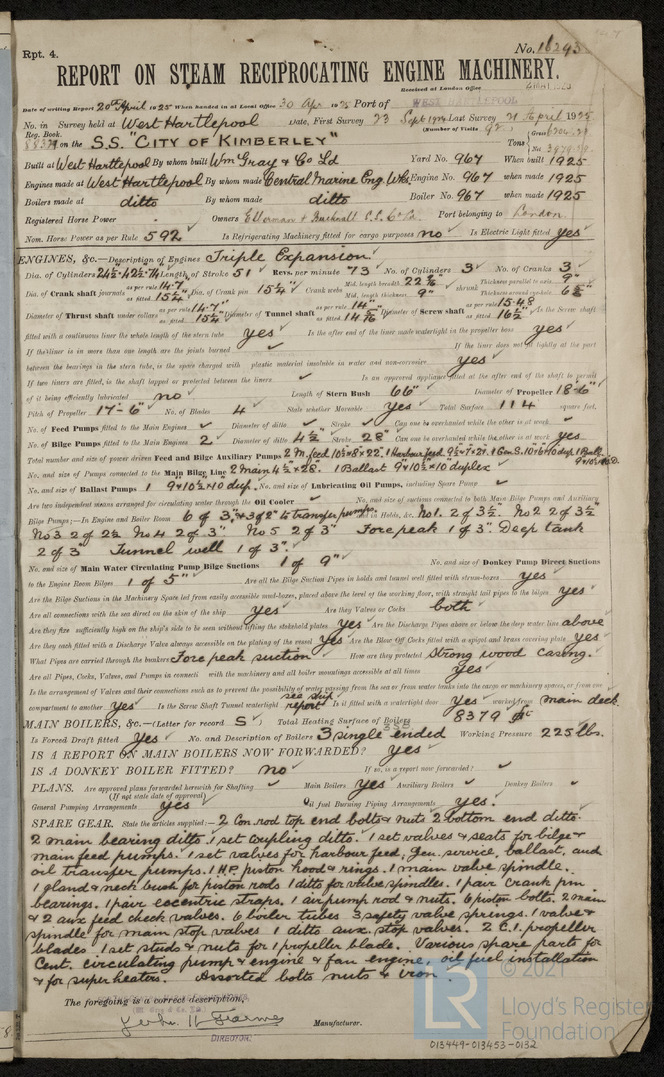 Rpt. 4.
No. 16293
REPORT ON STEAM RECIPROCATING ENGINE MACHINERY.
Received at London Office
Date of writing Report 20th April 1925 When handed in at Local Office 30 Apr 1925 Port of WEST HARTLEPOOL
No. in Survey held at West Hartlepool Date, First Survey 23 Sept 1924 Last Survey 21 April 1925
Reg. Book. (Number of Visits 92)
on the S.S. "CITY OF KIMBERLEY" Tons Gross Net
Built at West Hartlepool By whom built Wm Gray & Co Ld Yard No. 967 When built 1925
Engines made at West Hartlepool By whom made Central Marine Eng. Wks. Engine No. 967 when made 1925
Boilers made at ditto By whom made ditto Boiler No. 967 when made 1925
Registered Horse Power Owners Ellerman & Bucknall S.S. Co Ld. Port belonging to London.
Nom. Horse Power as per Rule 592 Is Refrigerating Machinery fitted for cargo purposes no Is Electric Light fitted yes
ENGINES, &c.—Description of Engines Triple Expansion.
Dia. of Cylinders 24½-42½-71 Length of Stroke 51 Revs. per minute 73 No. of Cylinders 3 No. of Cranks 3
Dia. of Crank shaft journals as per rule 14.7 as fitted 15¼" Dia. of Crank pin 15¼" Crank webs Mid. length breadth 22⅞" Mid. length thickness 9" shrunk Thickness parallel to axis 9" Thickness around eyehole
Diameter of Thrust shaft under collars as per rule 14.7" as fitted 15¼" Diameter of Tunnel shaft as per rule 14" as fitted Diameter of Screw shaft as per rule 15.48 as fitted 16½" Is the Screw shaft
fitted with a continuous liner the whole length of the stern tube yes Is the after end of the liner made watertight in the propeller boss yes
If the liner is in more than one length are the joints burned If the liner does not fit tightly at the part
between the bearings in the stern tube, is the space charged with a plastic material insoluble in water and non-corrosive yes
If two liners are fitted, is the shaft lapped or protected between the liners Is an approved appliance fitted at the after end of the shaft to permit
of it being efficiently lubricated no Length of Stern Bush 66" Diameter of Propeller 18'-6"
Pitch of Propeller 17'-6" No. of Blades 4 State whether Moveable Yes Total Surface 114 square feet.
No. of Feed Pumps fitted to the Main Engines Diameter of ditto Stroke Can one be overhauled while the other is at work
No. of Bilge Pumps fitted to the Main Engines 2 Diameter of ditto 4½" Stroke 28" Can one be overhauled while the other is at work yes
Total number and size of power driven Feed and Bilge Auxiliary Pumps 2 M. feed 10½×8×22". 1 Harbour feed
No. and size of Pumps connected to the Main Bilge Line 2 Main 4½×28. 1 Ballast 9×10½×10 duplex
No. and size of Ballast Pumps 1 9×10½×10 dup. No. and size of Lubricating Oil Pumps, including Spare Pump
Are two independent means arranged for circulating water through the Oil Cooler No. and size of suctions connected to both Main Bilge Pumps and Auxiliary
Bilge Pumps;—In Engine and Boiler Room 6 of 3", & 3 of 2" to transfer pumps. In Holds, &c. No 1. 2 of 3½". No 2 2 of 3½"
No 3 2 of 2½ No 4 2 of 3". No 5 2 of 3" Fore peak 1 of 3". Deep tank
2 of 3" Tunnel well 1 of 3".
No. and size of Main Water Circulating Pump Bilge Suctions 1 of 9" No. and size of Donkey Pump Direct Suctions
to the Engine Room Bilges 1 of 5" Are all the Bilge Suction Pipes in holds and tunnel well fitted with strum-boxes yes
Are the Bilge Suctions in the Machinery Space led from easily accessible mud-boxes, placed above the level of the working floor, with straight tail pipes to the bilges yes
Are all connections with the sea direct on the skin of the ship yes Are they Valves or Cocks both
Are they fixed sufficiently high on the ship's side to be seen without lifting the stokehold plates yes Are the Discharge Pipes above or below the deep water line above
Are they each fitted with a Discharge Valve always accessible on the plating of the vessel yes Are the Blow Off Cocks fitted with a spigot and brass covering plate yes
What Pipes are carried through the bunkers Fore peak suction How are they protected Strong wood casing.
Are all Pipes, Cocks, Valves, and Pumps in connection with the machinery and all boiler mountings accessible at all times yes
Is the arrangement of Valves and their connections such as to prevent the possibility of water passing from the sea or from water tanks into the cargo or machinery spaces, or from one
compartment to another yes Is the Screw Shaft Tunnel watertight see ship report Is it fitted with a watertight door yes worked from main deck.
MAIN BOILERS, &c.—(Letter for record S) Total Heating Surface of Boilers 8379
Is Forced Draft fitted yes No. and Description of Boilers 3 single ended Working Pressure 225 lbs.
IS A REPORT ON MAIN BOILERS NOW FORWARDED? yes
IS A DONKEY BOILER FITTED? no If so, is a report now forwarded?
PLANS. Are approved plans forwarded herewith for Shafting Main Boilers yes Auxiliary Boilers Donkey Boilers
(If not state date of approval)
General Pumping Arrangements yes Oil fuel Burning Piping Arrangements yes.
SPARE GEAR. State the articles supplied:— 2 Con. rod top end bolts & nuts 2 bottom end ditto.
2 main bearing ditto. 1 set coupling ditto. 1 set valves & seats for bilge &
main feed pumps. 1 set valves for harbour feed, Gen. service, ballast, and
oil transfer pumps. 1 H.P. piston hood & rings. 1 main valve spindle.
1 gland & neck bush for piston rods 1 ditto for valve spindles. 1 pair crank pin
bearings. 1 pair eccentric straps. 1 air pump rod & nuts. 6 piston bolts. 2 main
& 2 aux feed check valves. 6 boiler tubes 3 safety valve springs. 1 valve &
spindle for main stop valves 1 ditto aux. stop valves. 2 C.I. propeller
blades. 1 set studs & nuts for 1 propeller blade. Various spare parts for
Cent. circulating pump & engine & fan engine, oil fuel installation
& for super heaters. Assorted bolts nuts & iron.
The foregoing is a correct description,
Manufacturer.
DIRECTOR.
© 2021
LR
Lloyd's Register
Foundation
013449-013453-0132